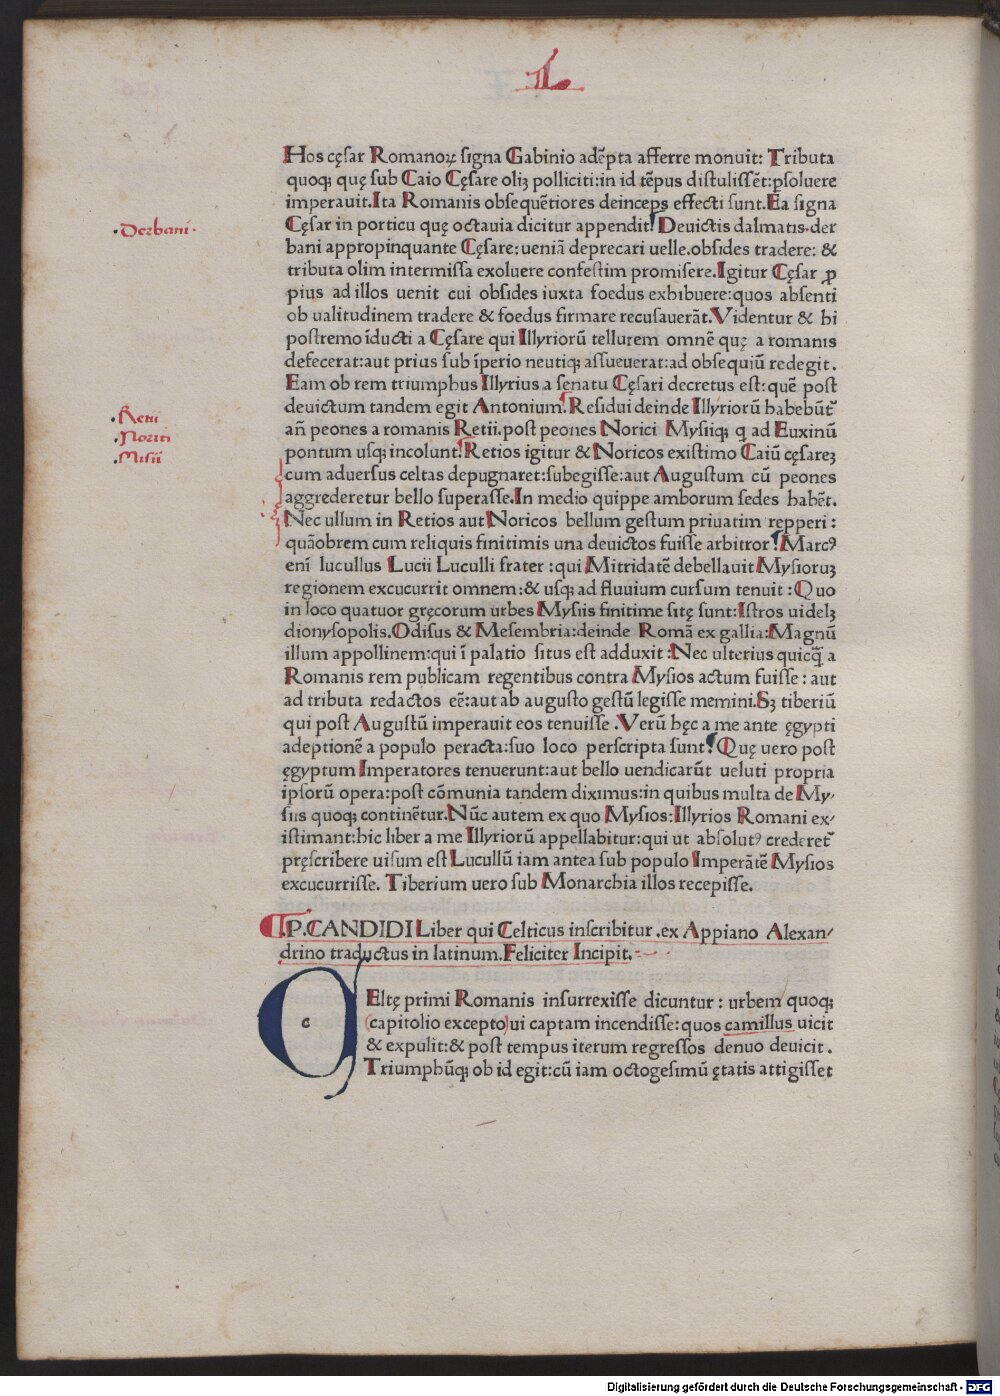 L
Hos cęsar Romanoꝝ signa Gabinio adēpta afferre monuit: Tributa
quoqꝫ quę sub Caio Cęsare oliꝫ polliciti:in id tēpus distulissēt:ꝑsoluere
imperauit.Ita Romanis obsequētiores deinceps effecti sunt.Ea signa
Cęsar in porticu quę octauia dicitur appendit. Deuictis dalmatis.der
·Derbani·
bani appropinquante Cęsare:ueniā deprecari uelle.obsides tradere: &
tributa olim intermissa exoluere confestim promisere.Igitur Cęsar ꝓ
pius ad illos uenit cui obsides iuxta foedus exhibuere:quos absenti
ob ualitudinem tradere & foedus firmare recusauerāt.Videntur & hi
postremo īducti a Cęsare qui Illyriorū tellurem omnē quę a romanis
defecerat:aut prius sub īperio neutiqꝫ assueuerat:ad obsequiū redegit.
Eam ob rem triumphus Illyrius a senatu Cęsari decretus est:quē post
deuictum tandem egit Antonium. Residui deinde Illyriorū habebūt᷑
·Retii
·Norici
·Misii
añ peones a romanis Retii.post peones Norici Mysiiqꝫ q ad Euxinū
pontum usqꝫ incolunt. Retios igitur & Noricos existimo Caiū cęsareꝫ
cum aduersus celtas depugnaret:subegisse:aut Augustum cū peones
aggrederetur bello superasse.In medio quippe amborum sedes habēt.
Nec ullum in Retios aut Noricos bellum gestum priuatim repperi:
quāobrem cum reliquis finitimis una deuictos fuisse arbitror. Marcꝰ
enī lucullus Lucii Luculli frater:qui Mitridatē debellauit Mysioruꝫ
regionem excucurrit omnem:& usqꝫ ad fluuium cursum tenuit:Quo
in loco quatuor gręcorum urbes Mysiis finitime sitę sunt:Istros uidelꝫ
dionysopolis.Odisus & Mesembria:deinde Romā ex gallia:Magnū
illum appollinem:qui ī palatio situs est adduxit:Nec ulterius quicq̄ a
Romanis rem publicam regentibus contra Mysios actum fuisse: aut
ad tributa redactos eē:aut ab augusto gestū legisse memini.Sꝫ tiberiū
qui post Augustū imperauit eos tenuisse.Verū hęc a me ante ęgypti
adeptionē a populo peracta:suo loco perscripta sunt. Quę uero post
ęgyptum Imperatores tenuerunt:aut bello uendicarūt ueluti propria
ipsorū opera:post cōmunia tandem diximus:in quibus multa de My-
siis quoqꝫ continētur.Nūc autem ex quo Mysios:Illyrios Romani ex-
istimant:hic liber a me Illyriorū appellabitur:qui ut absolutꝰ crederet᷑
pręscribere uisum est Lucullū iam antea sub populo Imperātē Mysios
excucurrisse. Tiberium uero sub Monarchia illos recepisse.
.P.CANDIDI Liber qui Celticus inscribitur.ex Appiano Alexan-
drino traductus in latinum.Feliciter Incipit.
c
Eltę primi Romanis insurrexisse dicuntur: urbem quoqꝫ
(capitolio excepto)ui captam incendisse:quos camillus uicit
& expulit:& post tempus iterum regressos denuo deuicit.
Triumphūqꝫ ob id egit:cū iam octogesimū ętatis attigisset
Digitalisierung gefördert durch die Deutsche Forschungsgemeinschaft - DFG